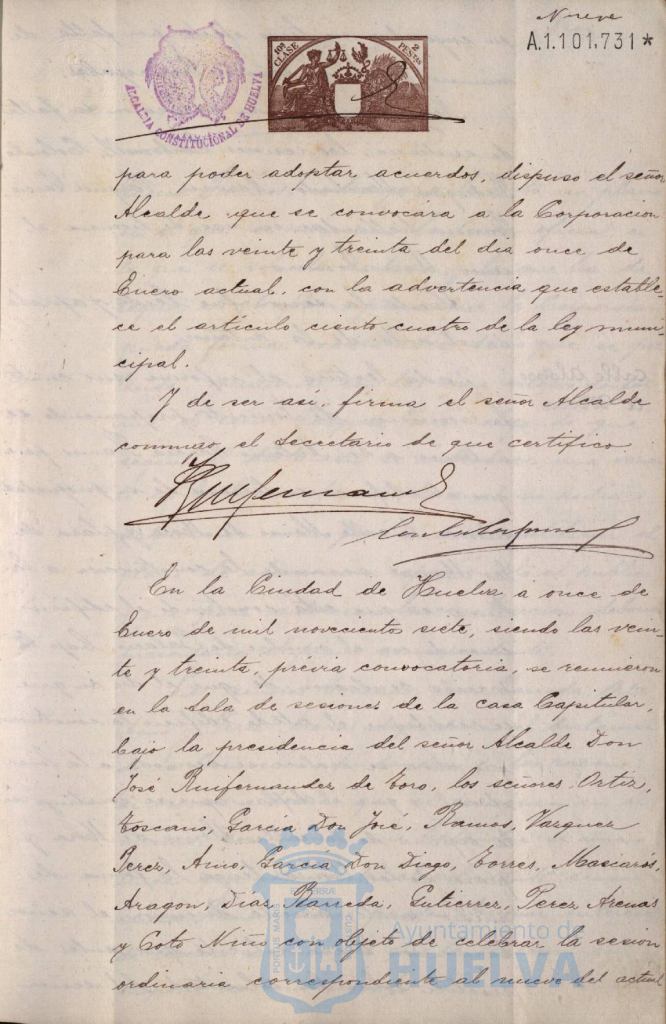 Nueve
A.1.101.731*
10ª CLASE
2 PESETAS
ALCALDIA CONSTITUCIONAL DE HUELVA
para poder adoptar acuerdos, dispuso el señor
Alcalde que se convocára a la Corporacion
para las veinte y treinta del dia once de
Enero actual, con la advertencia que estable-
ce el artículo ciento cuatro de la ley muni-
cipal.
Y de ser así, firma el señor Alcalde
conmigo, el Secretario de que certifico
En la Ciudad de Huelva a once de
Enero de mil novecientos siete, siendo las vein-
te y treinta, prévia convocatoria, se reunieron
en la Sala de sesiones de la casa Capitular,
bajo la presidencia del señor Alcalde Don
José Ruifernandez de Toro, los señores Ortiz,
Toscano, García Don José, Ramos, Vazquez
Perez, García Don Diego, Torres, Mascarós,
Aragon, Dias, Barreda, Gutierrez, Perez Arenas
y Coto Niño con objeto de celebrar la sesion
ordinaria correspondiente al nueve del actual
Ayuntamiento de
HUELVA